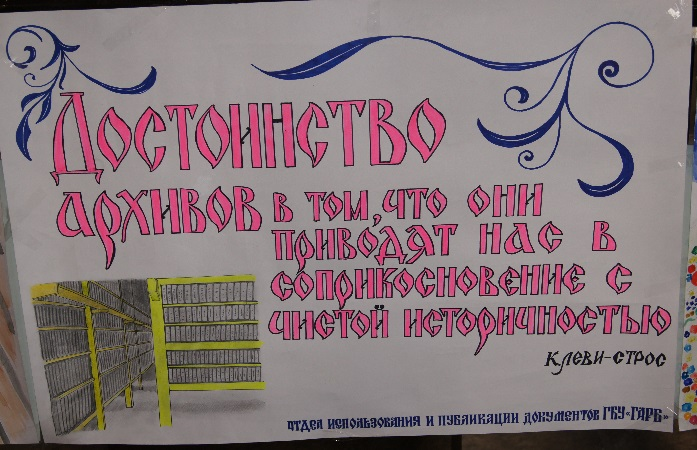 Достоинство
архивов в том, что они
приводят нас в
соприкосновение с
чистой историчностью
Клеви-строс
отдел использования и публикации документов ГБУ «ГАРБ»